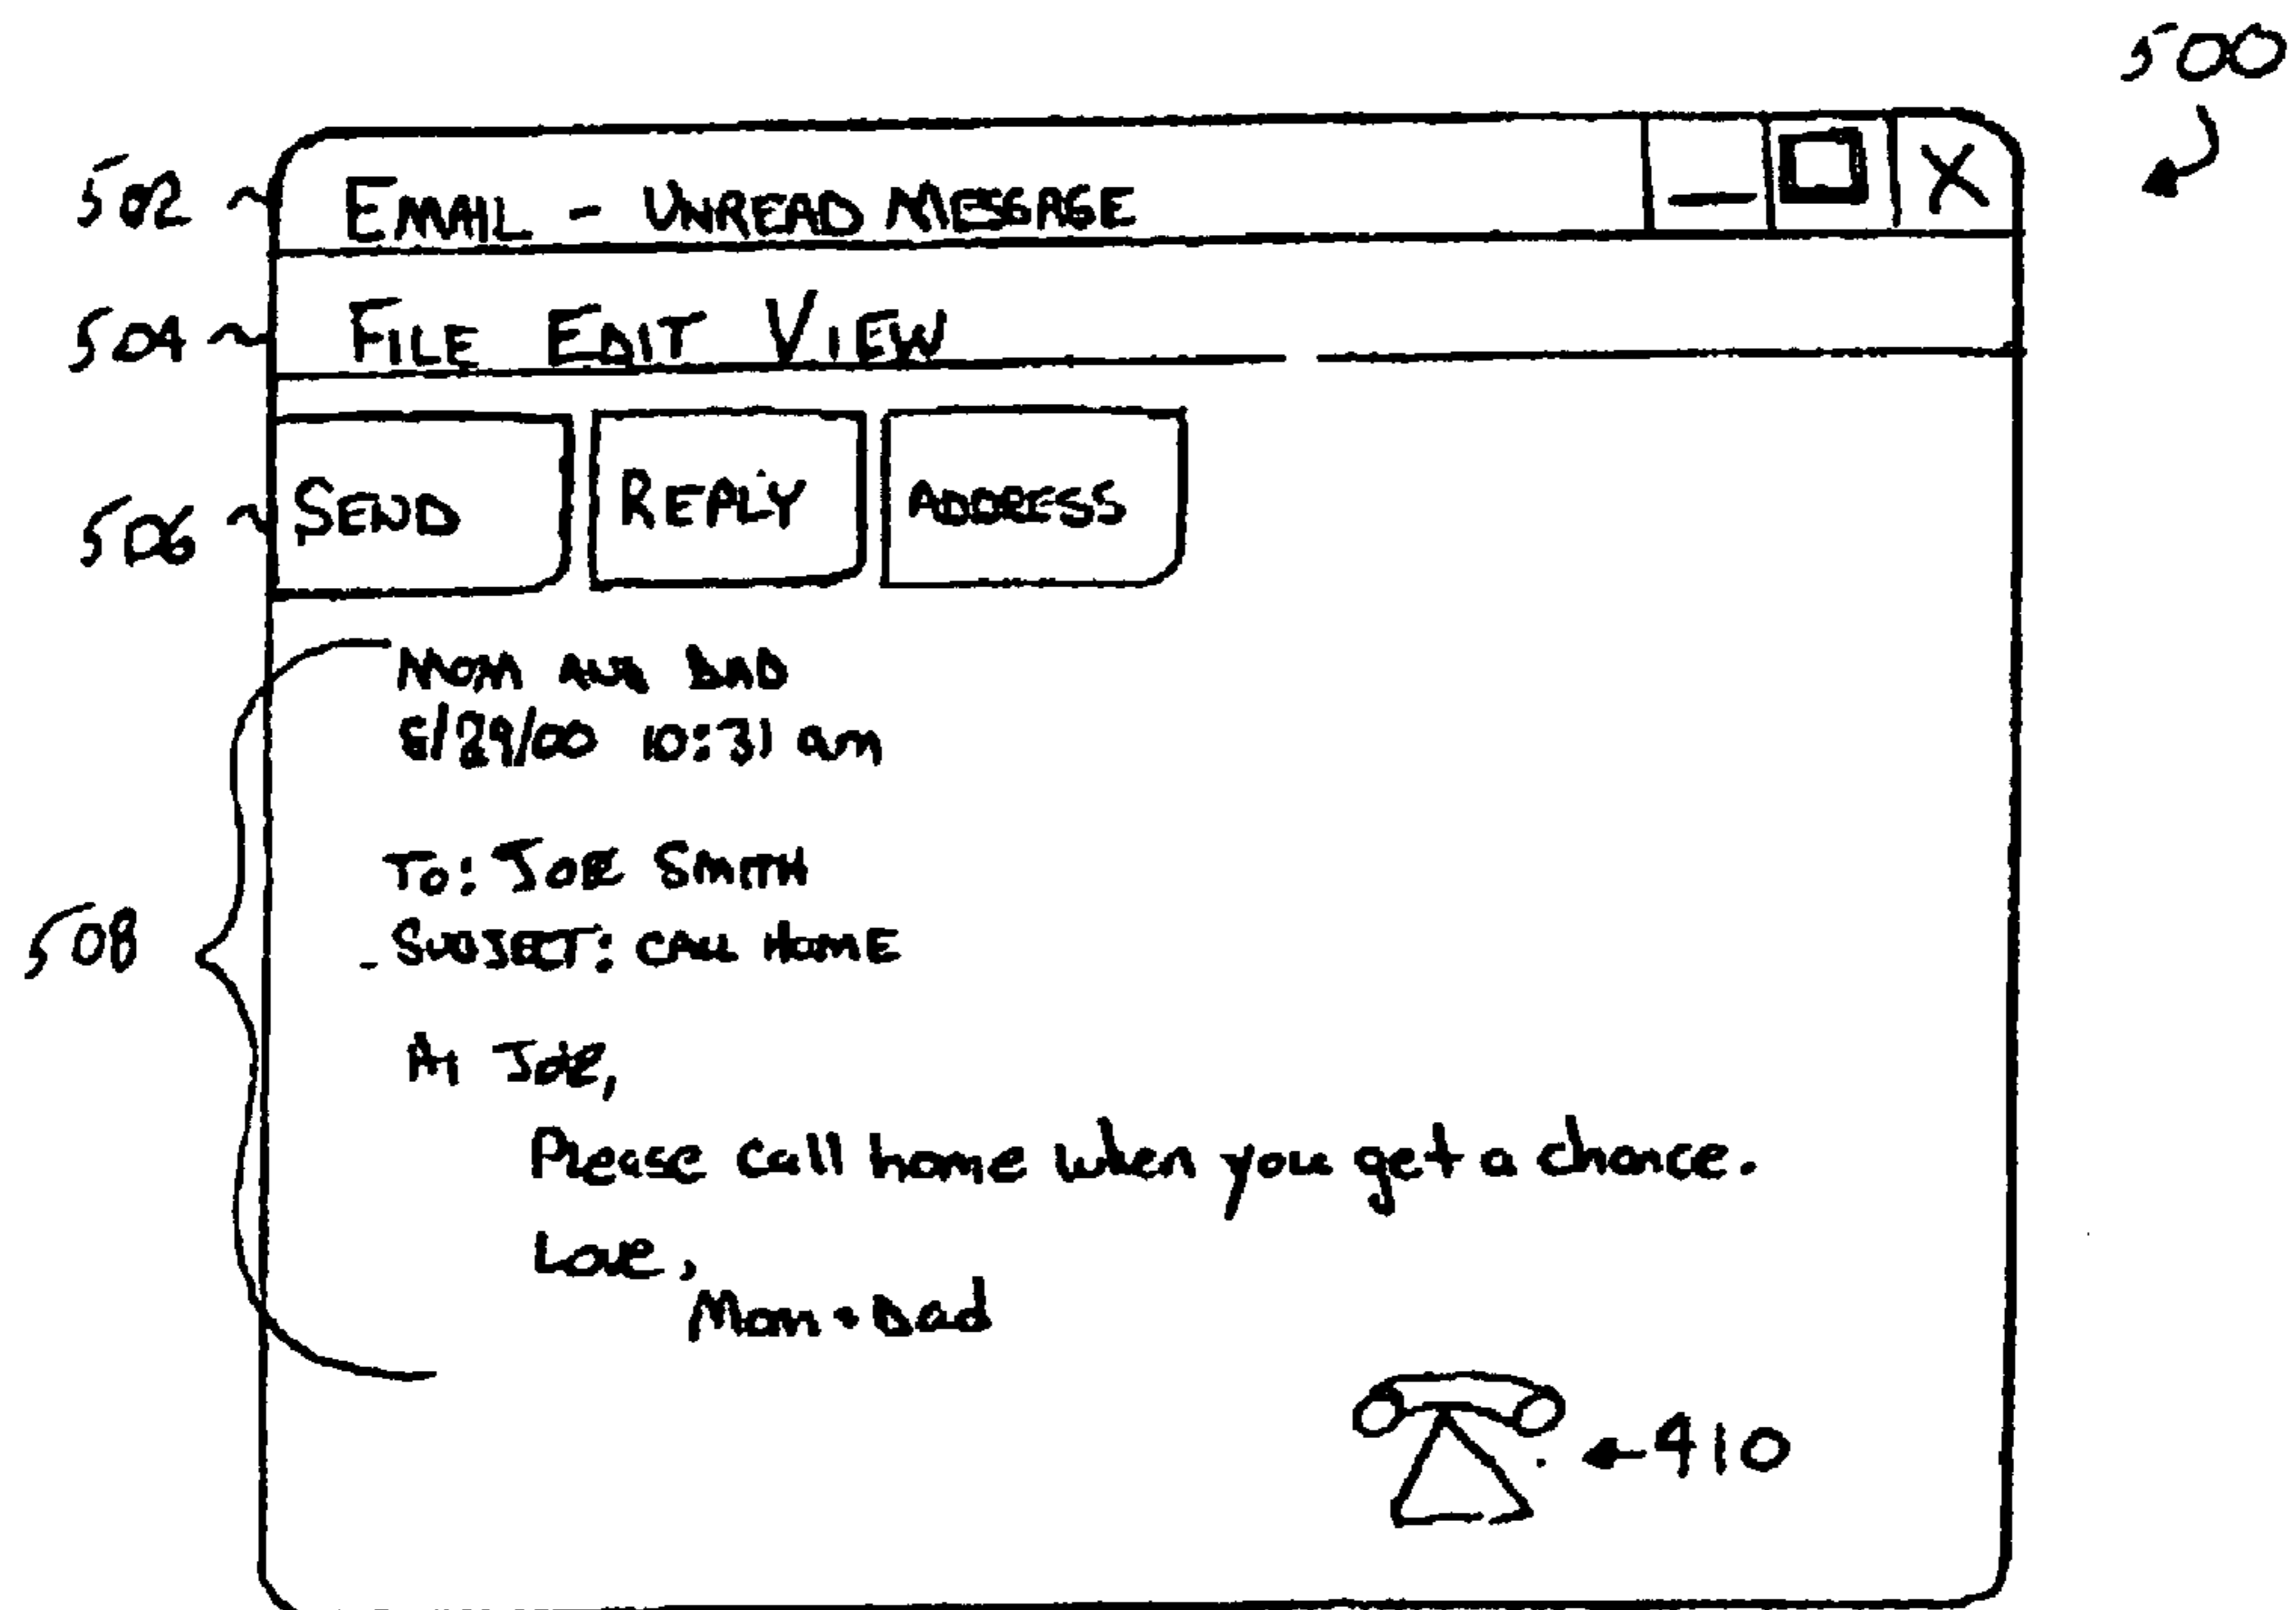 500
502 EMAIL - UNREAD MESSAGE _ X
504 FILE EDIT VIEW
506 SEND REPLY ADDRESS
MOM AND DAD
8/29/00 10:31 am
To: JOE SMITH
508 SUBJECT: CALL HOME
Hi JOE,
Please call home when you get a chance.
Love,
Mom + Dad
410